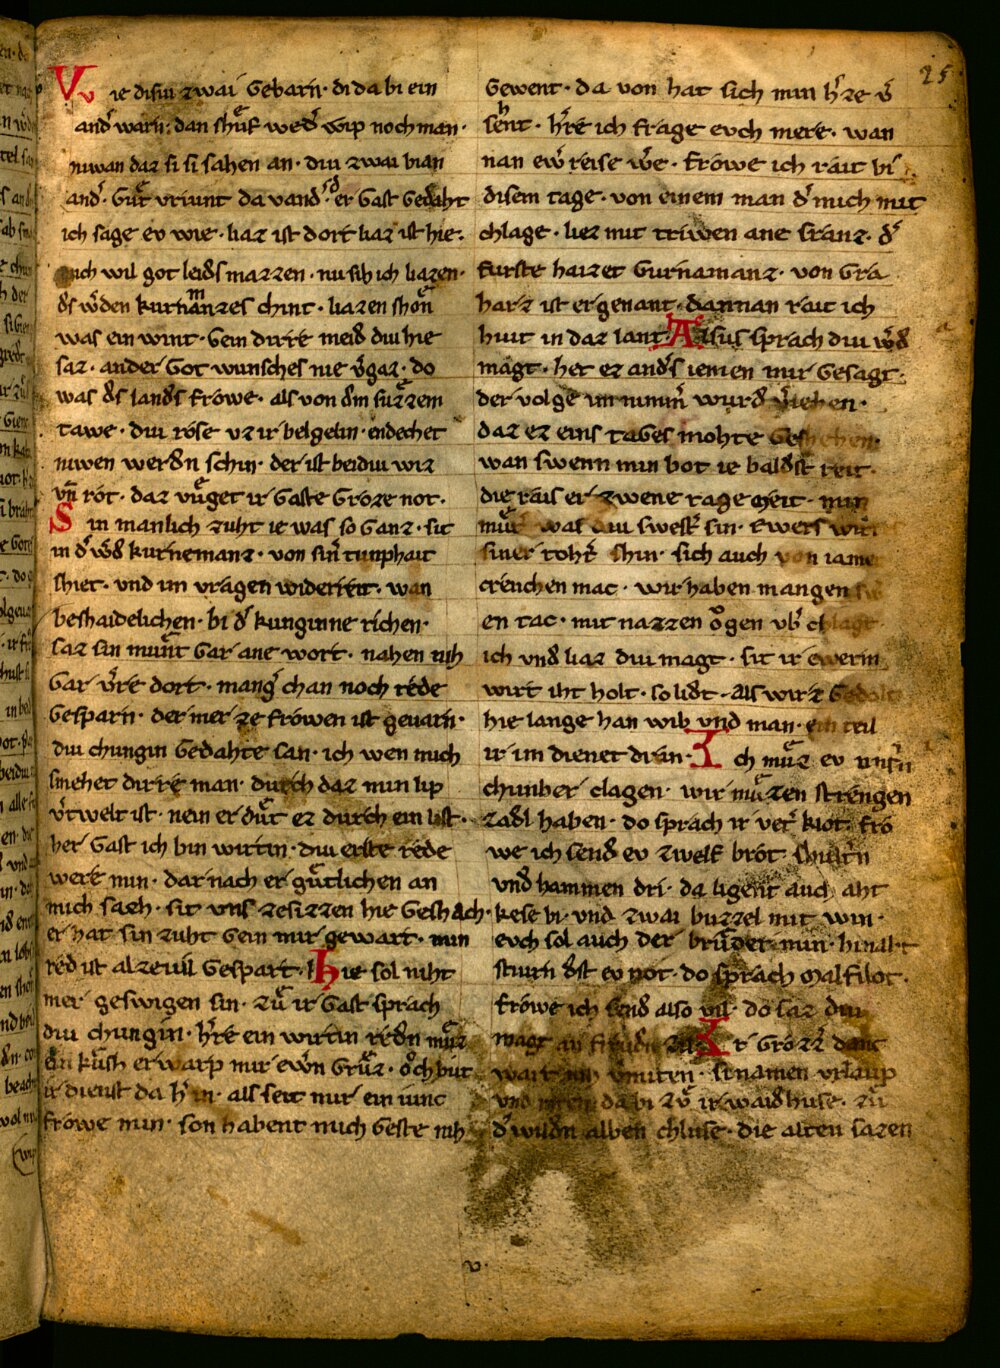 25
Vv ie disiu zwai gebarn· di da bi ein
and͛ warn· dan shůf wed͛ wip noch man·
niwan daz si si sahen an· diu zwai bian
and͛· gůt vriunt da vand͛· er gast gedaht
ich sage ev wie· liaz ist dort liaz ist hie·
mich wil got leid͛s mazzen· nu sih ich liazen·
d͛s w͛den kurnamanzes chint· liazen shon
was ein wint· gein dirre meid diu hie
saz· an der got wunsches nie v͛gaz· do
was d͛s land͛s frowe· als von d͛m suzzem
tawe· diu rose vz ir belgelin· endechet
niwen werdn schin· der ist beidiu wiz
vn̄ rot· daz vůget ir gaste groze not·
Sin manlich zuht ie was so ganz· sit
in d͛ w͛d kurnemanz· von sin͛ tunphait
shiet· und im vragen widerriet· wan
beshaidelichen· bi d͛ kunginne richen·
saz sin munt gar ane wort· nahen nih
gar v͛re dort· mang͛ chan noch rede
gesparn· der mer ze frowen ist gevarn·
diu chungin gedahte san· ich wen mich
smehet dirre man· durch daz min lip
v͛twelt ist· nein er důt ez durch ein list·
her gast ich bin wirtin· diu erste rede
were min· dar nach er gůtlichen an
mich sach· sit uns ze sizzen hie geshach·
er hat sin zuht gein mir gewart· min
red ist al ze vil gespart· hie sol niht
mer geswigen sin· zů ir gast sprach
diu chungin· h͛re ein wirtin redn můz
ein kush erwarp mir ewn gruz· och but
ir dienst da h͛ in· als seit mir ein iunc
frowe min· son habent mich geste nih
gewent· da von hat sich min h͛ze v͛
sent· h͛re ich frage evch mere· wan
nan ew͛ reise w͛e· frowe ich rait bi
disem tage· von einem man d͛ mich mit
chlage· liez mit triwen ane sranz· d͛
furste haizet gurnamanz· von gra
harz ist er genant· dannan rait ich
hiut in daz lant Alsus sprach diu w͛d
magt· het ez and͛s iemen mir gesagt·
der volge im nimm͛ wurd v͛iehen·
daz ez eins tages mohte geshehen·
wan swenn min bot ie baldst reit·
die rais er zwene tage meit· min
můt͛ was diu swest͛ sin· ewers wirt
siner toht͛ shin· sich auch von iame
crenchen mac· wir haben mangen sw
en tac· mit nazzen ogen vb͛ chlagt
ich und liaz diu magt· sit ir ewerm
wirt iht holt· so lidt· als wirz gedolt
hie lange han wib und man· ein teil
ir im dienet dran· Ich můz ev unsn
chunber clagen· wir můzen strengen
zadl haben· do sprach ir vet͛ kiot· fro
we ich send ev zwelf brot· shultn
und hammen dri· da ligent auch aht
kese bi· und zwai buzzel mit win·
evch sol auch der brůder min· hinaht
stiurn dst ev not· do sprach malfilot·
frowe ich send also vil· do saz diu
magt an freuden zil· Ir grozz danc
wart im vmiten· si namen vrlaup
und riten da bi zů ir waidhuse· zů
d͛ wildn alben chluse· die alten sazen
v·